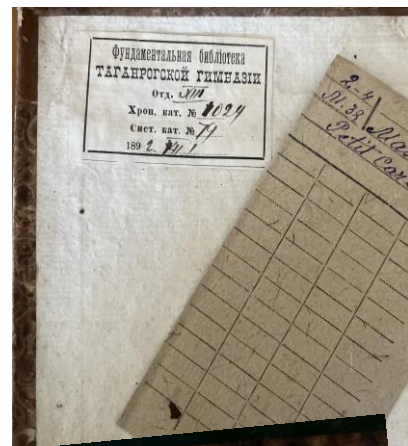 Фундаментальная библіотека
ТАГАНРОГСКОЙ ГИМНАЗІИ
Отд. XIII
Хрон. кат. № 1024
Сист. кат. № 79
189 2. VII 1
2-4
М. 33
Petit Car